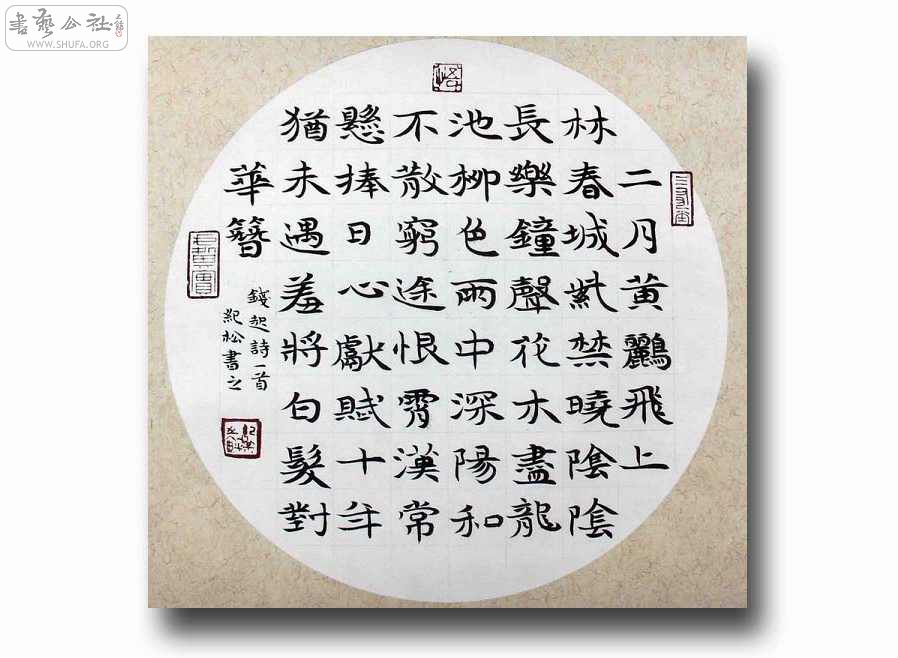 書藝公社
WWW.SHUFA.ORG
二月黃鸝飛上
林春城紫禁曉陰陰
長樂鐘聲花木盡龍
池柳色雨中深陽和
不散窮途恨霄漢常
懸捧日心獻賦十年
猶未遇羞將白髮對
華簪
錢起詩一首
紀松書之